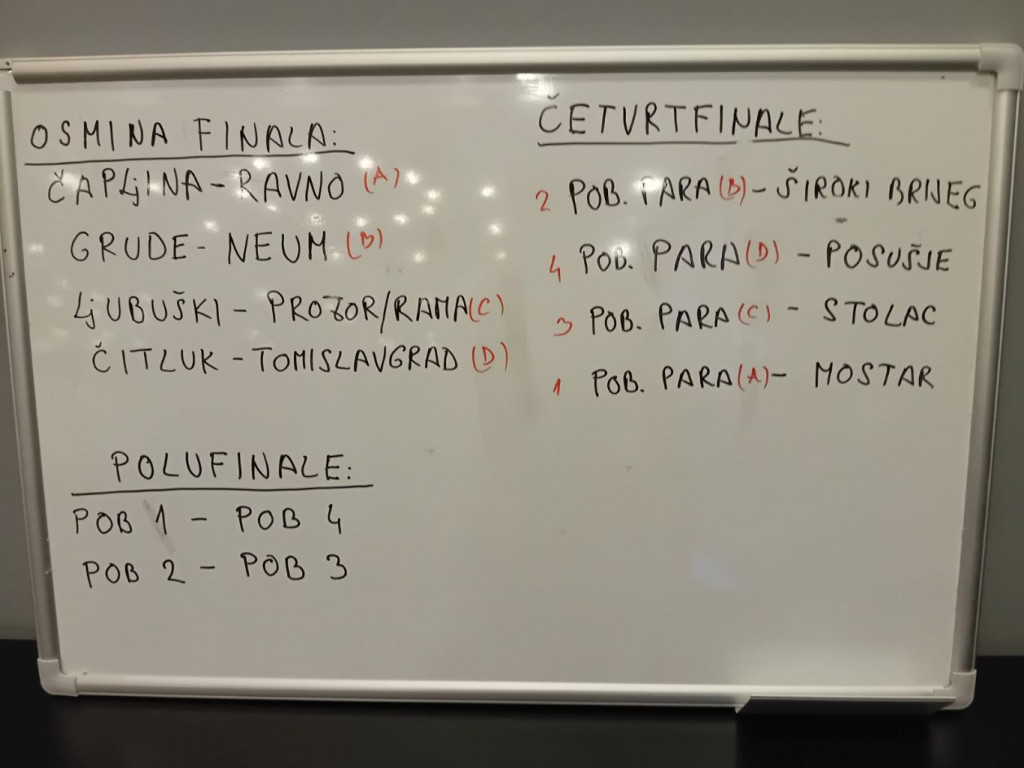 OSMINA FINALA:
ČAPLjINA - RAVNO (A)
GRUDE - NEUM (B)
LjUBUŠKI - PROZOR/RAMA (C)
ČITLUK - TOMISLAVGRAD (D)
ČETVRTFINALE:
2 POB. PARA (B) - ŠIROKI BRIJEG
4 POB. PARA (D) - POSUŠJE
3 POB. PARA (C) - STOLAC
1 POB. PARA (A) - MOSTAR
POLUFINALE:
POB 1 - POB 4
POB 2 - POB 3